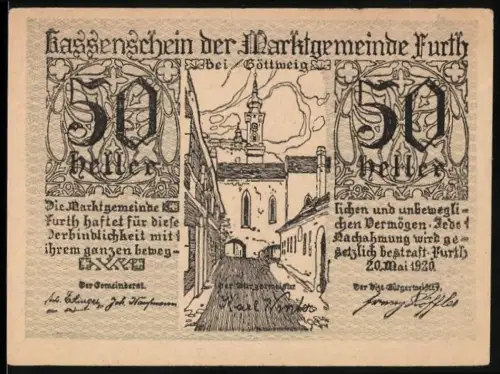 Kassenschein der Marktgemeinde Furth
bei Göttweig
50
Heller
50
Heller
Die Marktgemeinde
Furth haftet für diese
Verbindlichkeit mit
ihrem ganzen beweg-
lichen und unbewegli-
chen Vermögen. Jede
Nachahmung wird ge-
setzlich bestraft. Furth
20. Mai 1920.
Der Gemeinderat.
Der Bürgermeister
Karl Winter
Der Vize-Bürgermeister.
Franz